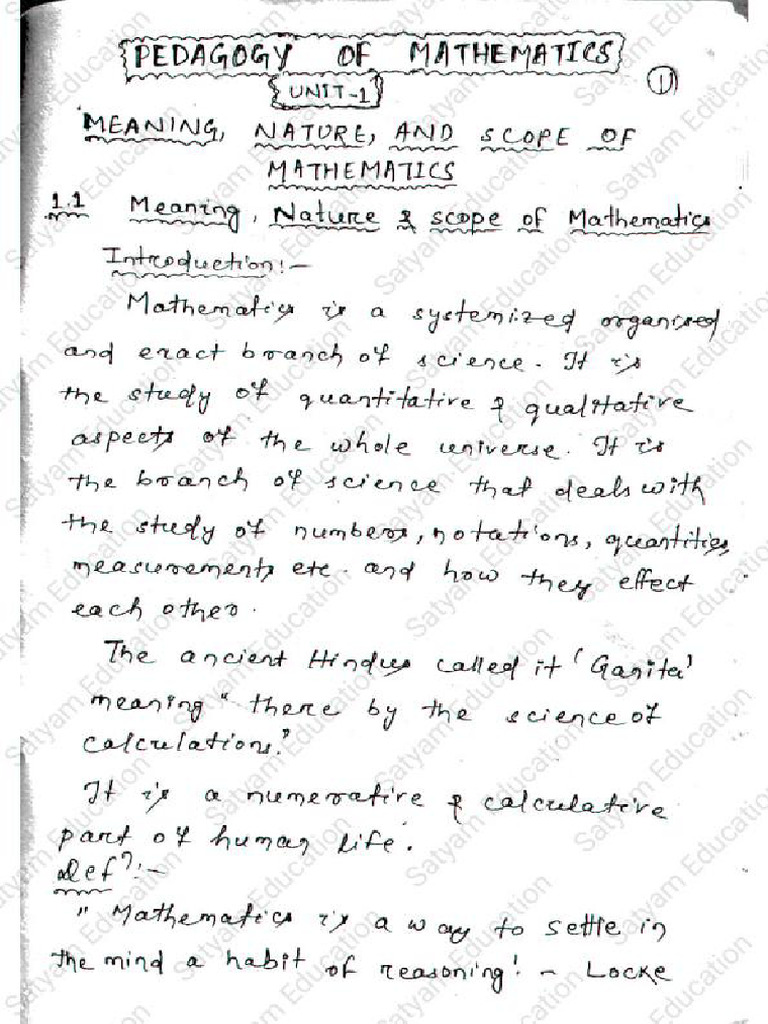 PEDAGOGY OF MATHEMATICS
1
UNIT-1
MEANING, NATURE, AND SCOPE OF
MATHEMATICS
1.1 Meaning, Nature & scope of Mathematics
Introduction:-
Mathematics is a systemized organised
and exact branch of science. It is
the study of quantitative & qualitative
aspects of the whole universe. It is
the branch of science that deals with
the study of numbers, notations, quantities,
measurements etc. and how they effect
each other.
The ancient Hindus called it 'Ganita'
meaning "there by the science of
calculations."
It is a numerative & calculative
part of human life.
Defn:-
"Mathematics is a way to settle in
the mind a habit of reasoning! - Locke
Satyam Education